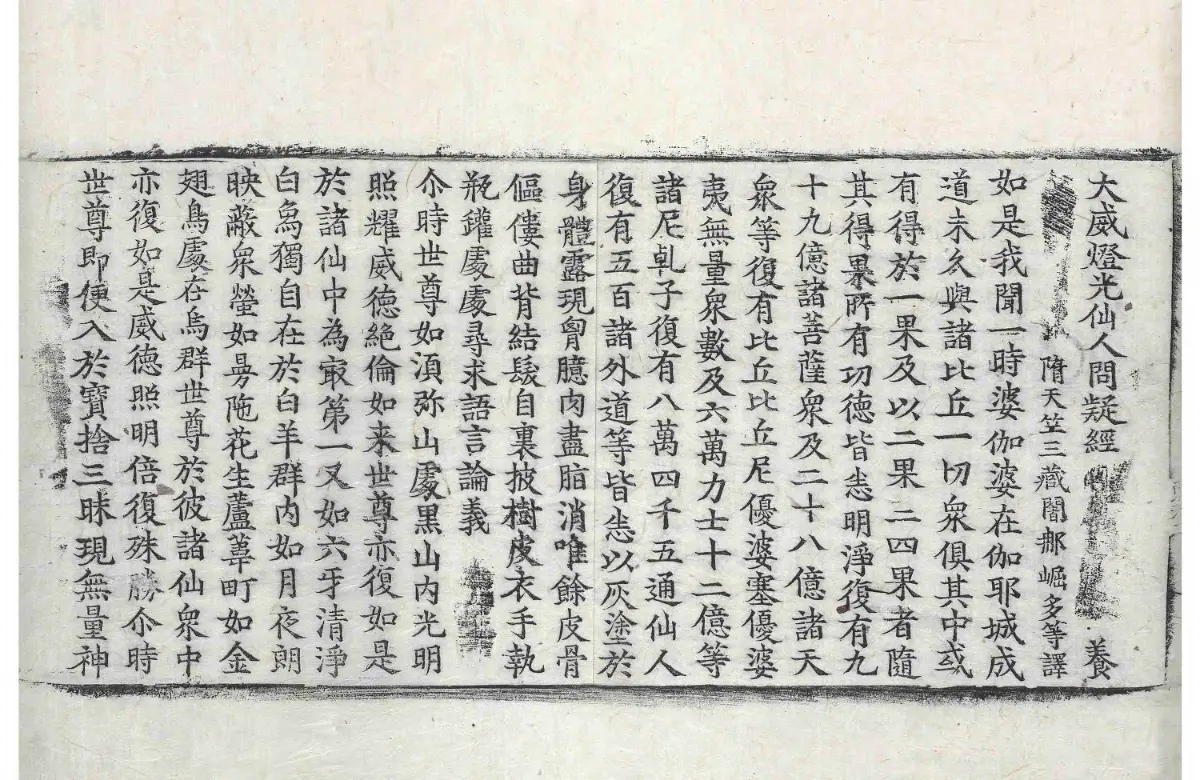 大威燈光仙人問疑經 養
隋天竺三藏闍那崛多等譯
如是我聞一時婆伽婆在伽耶城成
道未久與諸比丘一切衆俱其中或
有得於一果及以二果三四果者隨
其得果所有功德皆悉明淨復有九
十九億諸菩薩衆及二十八億諸天
衆等復有比丘比丘尼優婆塞優婆
夷無量衆數及六萬力士十二億等
諸尼乹子復有八萬四千五通仙人
復有五百諸外道等皆悉以灰塗於
身體露現胷臆肉盡脂消唯餘皮骨
傴僂曲背結髮自裹披樹皮衣手執
瓶鑵處處尋求語言論義
尒時世尊如湏弥山處黑山内光明
照耀威德絶倫如来世尊亦復如是
於諸仙中為㝡第一又如六牙清淨
白象獨自在於白羊群内如月夜朗
映蔽衆螢如曼陁花生蘆葦町如金
翅鳥處在烏群世尊於彼諸仙衆中
亦復如是威德照明倍復殊勝尒時
世尊即便入於寶捨三昧現無量神